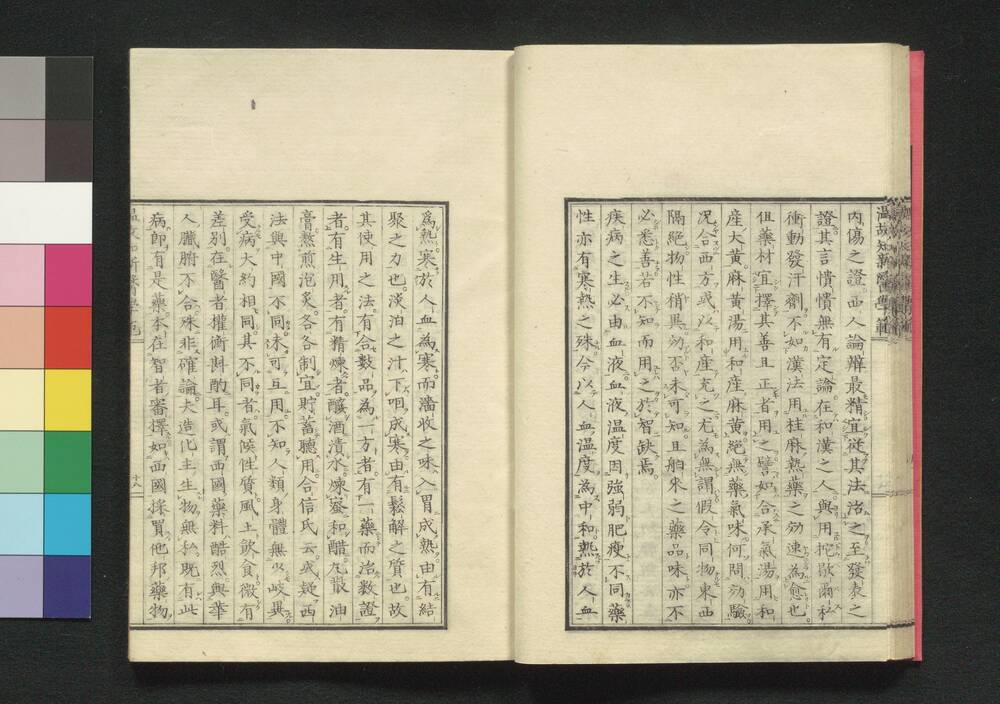 温故知新醫學範
内傷之證西人論辨最精宜従其法治之至發表之
證其言憒憒無有定論在和漢之人與用挖歇爾私
衝動發汗劑不如漢法用桂麻熱藥之効速為愈也
但藥材宜擇其善且正者用之譬如合承氣湯用和
産大黄麻黄湯用和産麻黄絶無藥氣味何問効驗
况合西方或以和産充之尤為無謂假令同物東西
隔絶物性稍異効否未可知且舶來之藥品味亦不
必悉善若不知而用之於智缺焉
疾病之生必由血液血液温度因強弱肥瘦不同藥
性亦有寒熱之殊今以人血温度為中和熱於人血
為熱寒於人血為寒而濇收之味入胃成熱由有結
聚之力也淡泊之汁下咽成寒由有鬆解之質也故
其使用之法有合數品為一方者有一藥而治數證
者有生用者有精煉者釀酒漬水煉蜜和醋丸散油
膏熬煎泡炙各各制宜貯蓄聽用合信氏云或疑西
法與中國不同恐未可互用不知人類身體無少岐異
受病大約相同其不同者氣候性質風土飲食微有
差別在醫者權衡斟酌耳或謂西國藥料酷烈與華
人臓腑不合殊非確論夫造化主生物無私既有此
病即有是藥本在智者審擇如西國採買他邦藥物
十八